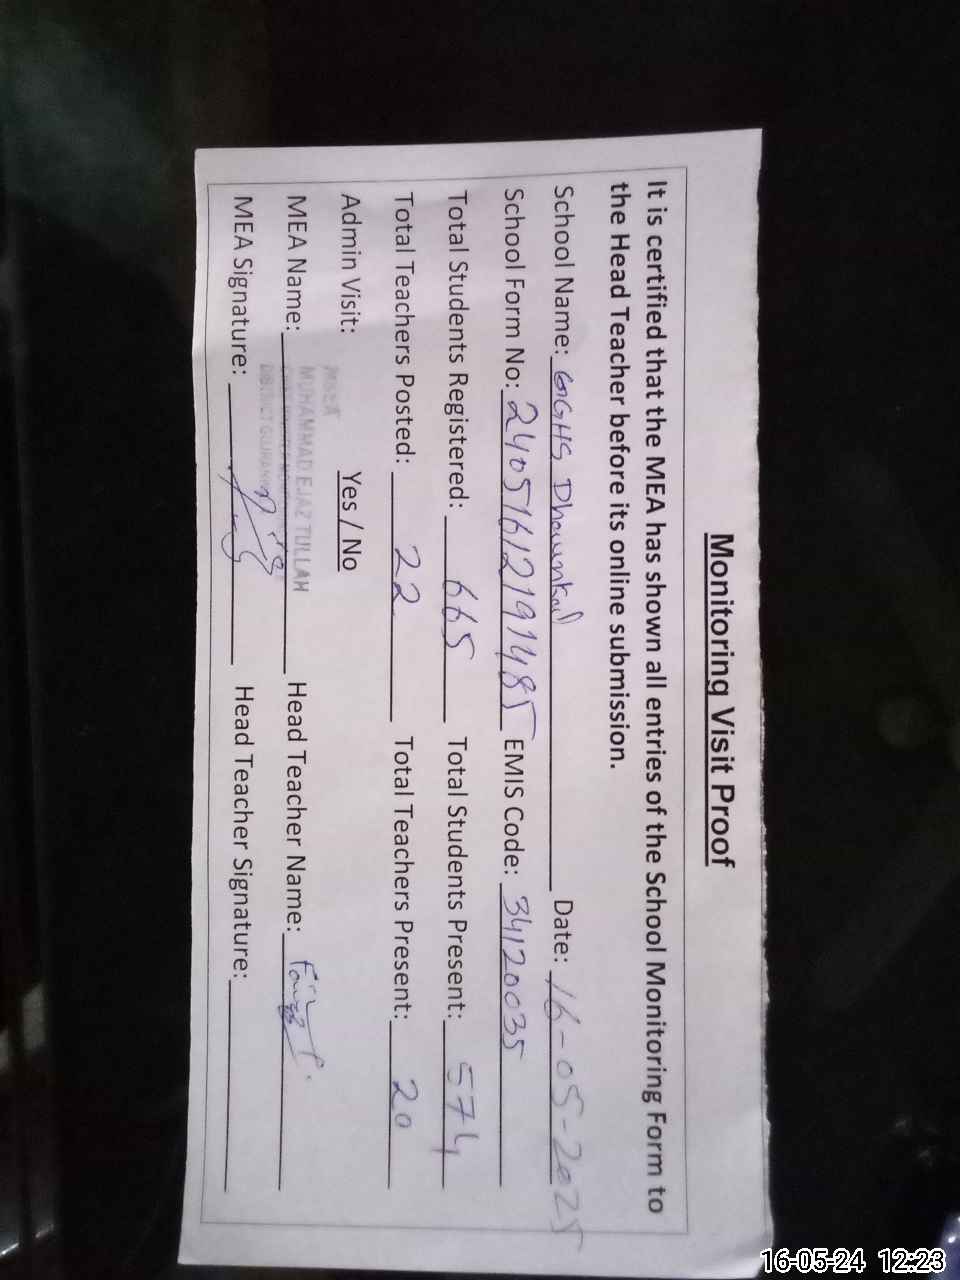 Monitoring Visit Proof
It is certified that the MEA has shown all entries of the School Monitoring Form to
the Head Teacher before its online submission.
School Name: GGHS Dhaunkal Date: 16-05-2025
School Form No: 24051612191485 EMIS Code: 34120035
Total Students Registered: 665 Total Students Present: 574
Total Teachers Posted: 22 Total Teachers Present: 20
Admin Visit: Yes / No
MUHAMMAD EJAZ TULLAH
MEA Name: Head Teacher Name:
DISTRICT
MEA Signature: Head Teacher Signature:
16-05-24 12:23